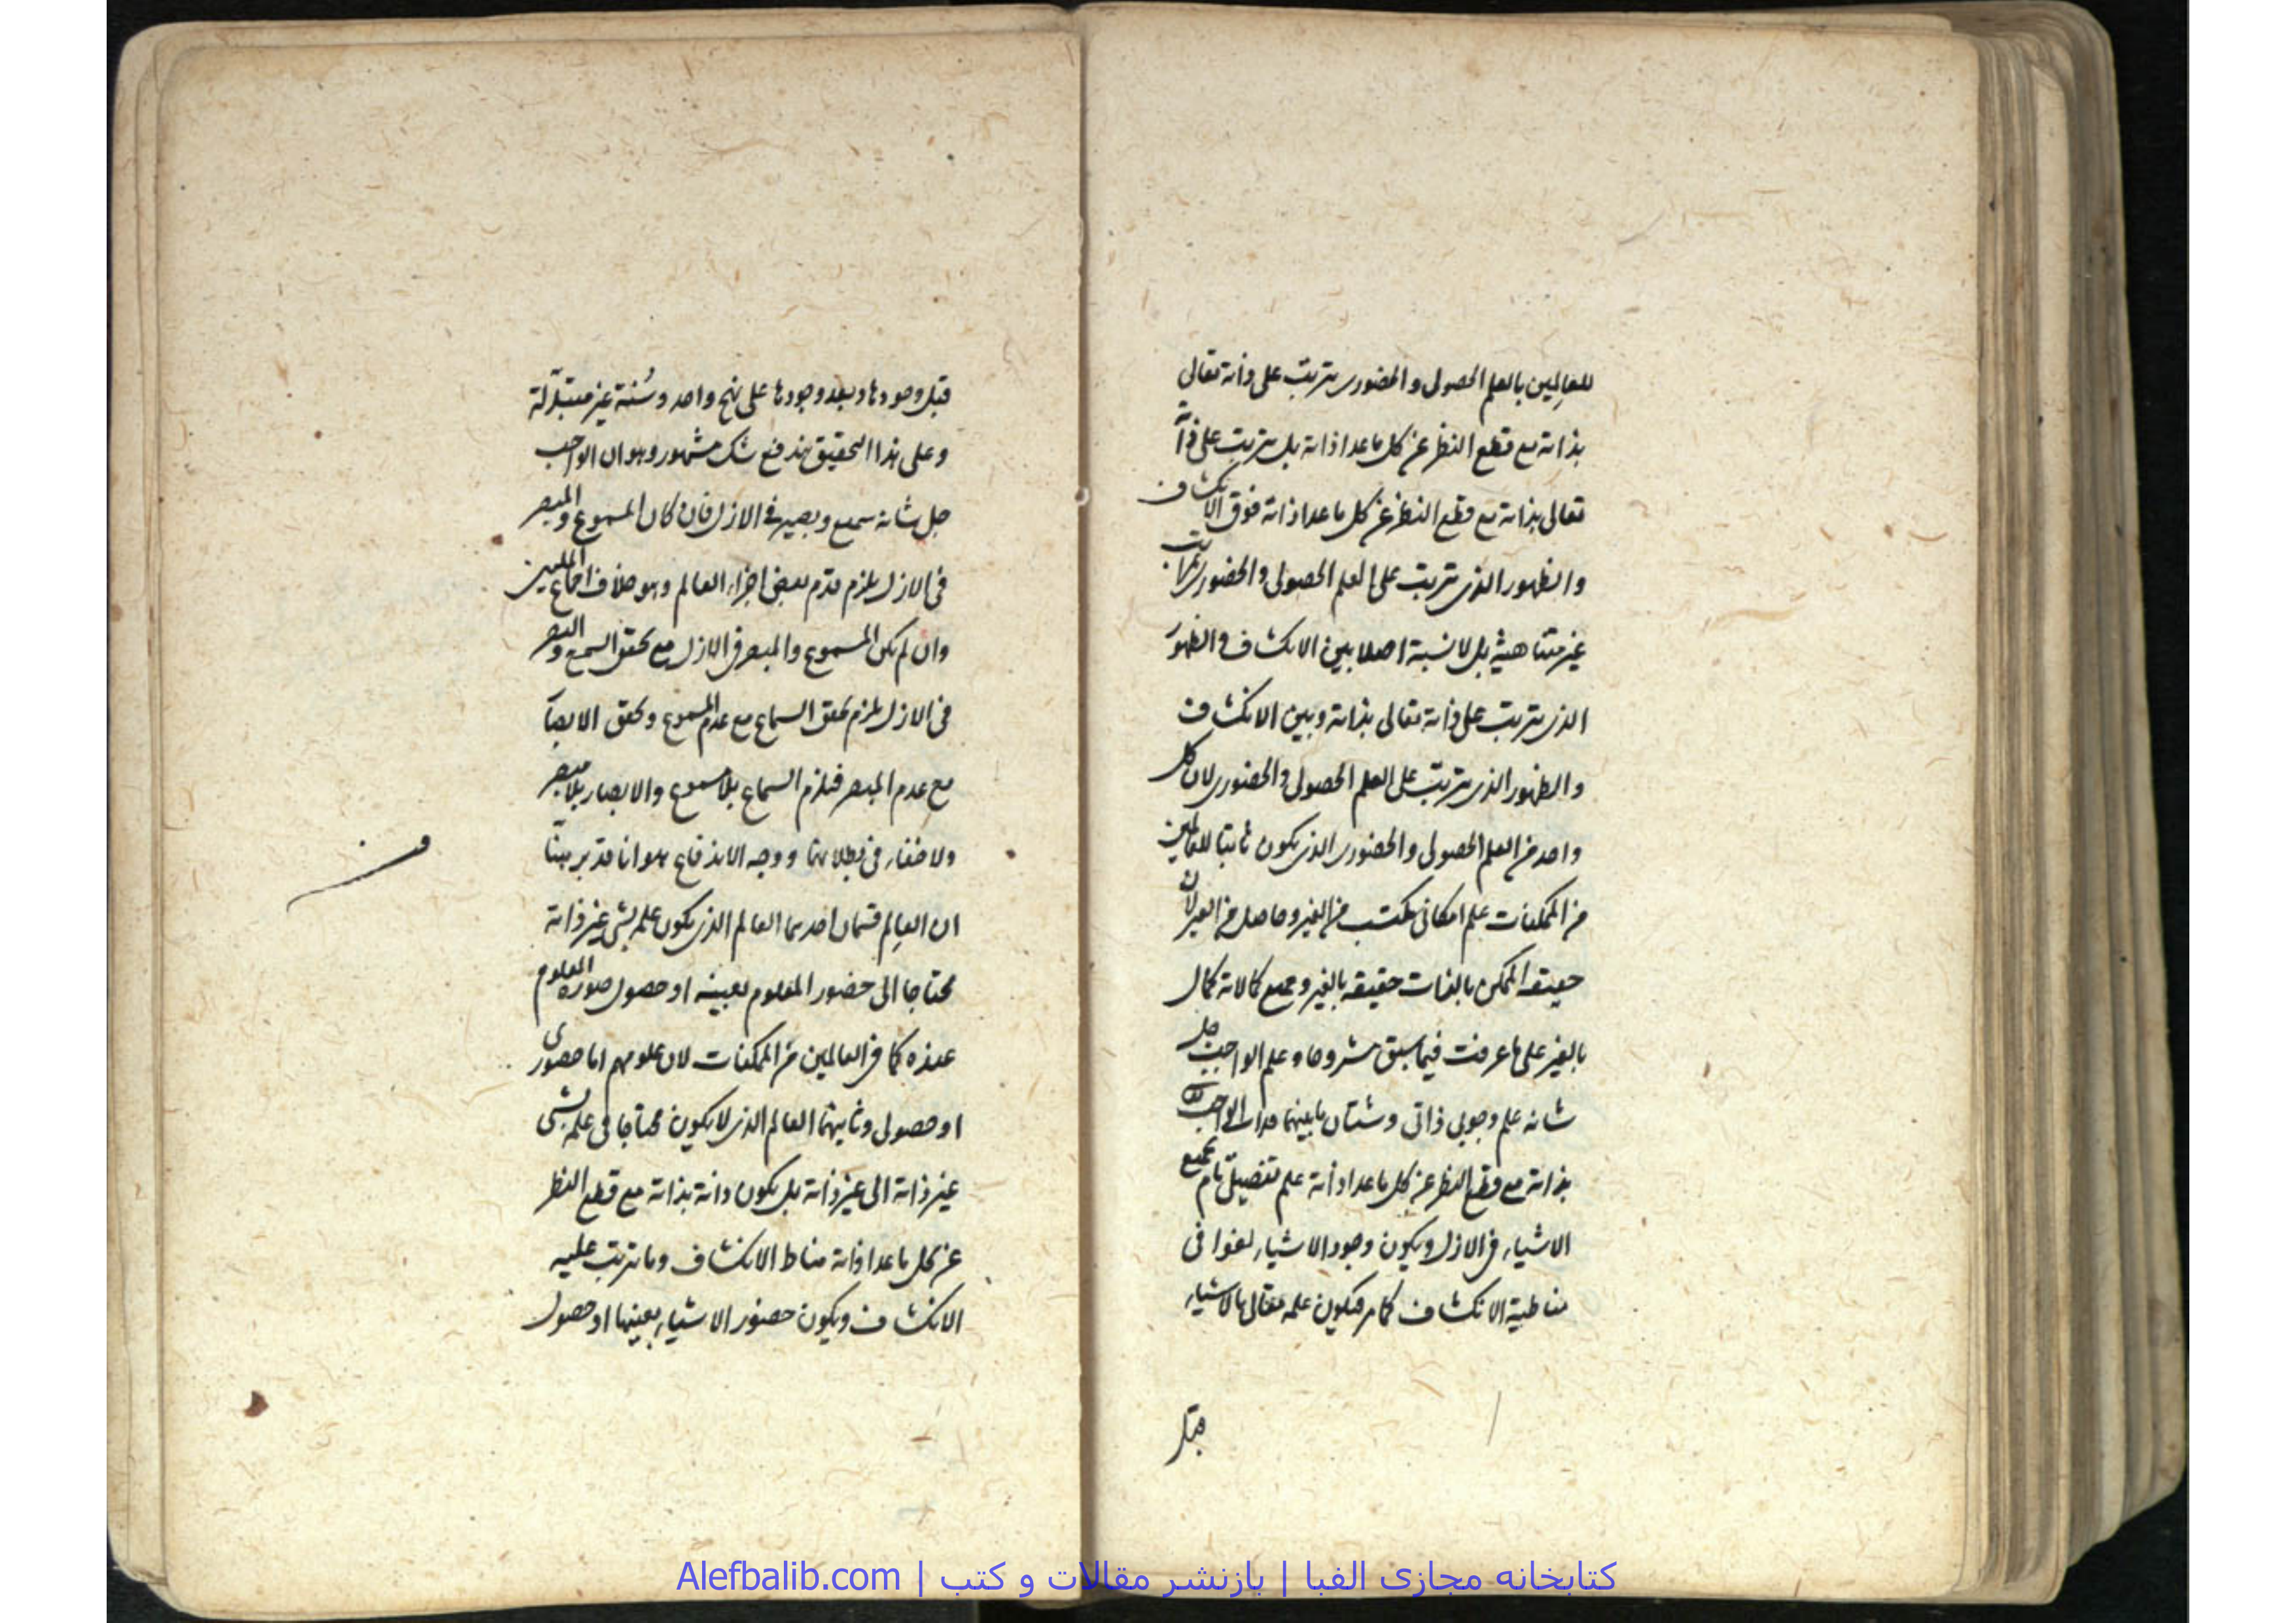 للعالِمين بالعلم الحصولى و الحضورى يترتب على ذاته تعالى
بذاته مع قطع النظر عن كل ما عدا ذاته بل يترتب على ذاته
تعالى بذاته مع قطع النظر عن كل ما عدا ذاته فوق الانكشاف
والظهور الذى يترتب على العلم الحصولى والحضورى بمراتب
غير متناهية بل لا نسبة اصلا بين الانكشاف والظهور
الذى يترتب على ذاته تعالى بذاته وبين الانكشاف
والظهور الذى يترتب على العلم الحصولى والحضورى لان كل
واحد من العلم الحصولى والحضورى الذى يكون ثابتا للعالمين
من الممكنات علم امكانى مكتسب من الغير وحاصل من الغير لان
حقيقة الممكن بالذات حقيقة بالغير وجميع كمالاته كمال
بالغير على ما عرفت فيما سبق مشروحا وعلم الواجب جل
شانه علم وجوبى ذاتى وشتان ما بينهما فذات الواجب
بذاته مع قطع النظر عن كل ما عدا ذاته علم تفصيلى تام بجميع
الاشياء فى الازل ويكون وجود الاشياء لغوا فى
مناطية الانكشاف كما مر فيكون علمه تعالى بالاشياء
قبل
قبل وجودها وبعد وجودها على نهج واحد وسُنة غير متبدّلة
وعلى هذا التحقيق يندفع شك مشهور وهو ان الواجب
جل شانه سميع وبصير فى الازل فان كان المسموع والمبصر
فى الازل يلزم قدم بعض اجزاء العالم وهو خلاف اجماع المليين
وان لم يكن المسموع والمبصر فى الازل مع تحقق السمع والبصر
فى الازل يلزم تحقق السماع مع عدم المسموع وتحقق الابصار
مع عدم المبصر فيلزم السماع بلا مسموع والابصار بلا مبصر
ولا خفاء فى بطلانهما ووجه الاندفاع هو انا قد بينا
ان العالِم قسمان احدهما العالم الذى يكون علمه بشئ غير ذاته
محتاجا الى حضور المعلوم بعينه او حصول صورة المعلوم
عنده كما فى العالمين من الممكنات لان علومهم اما حضورى
او حصولى وثانيهما العالم الذى لا يكون محتاجا فى علمه بشئ
غير ذاته الى غير ذاته بل يكون ذاته بذاته مع قطع النظر
عن كل ما عدا ذاته مناط الانكشاف وما يترتب عليه
الانكشاف ويكون حضور الاشياء بعينها او حصول
كتابخانه مجازى الفبا | بازنشر مقالات و كتب | Alefbalib.com